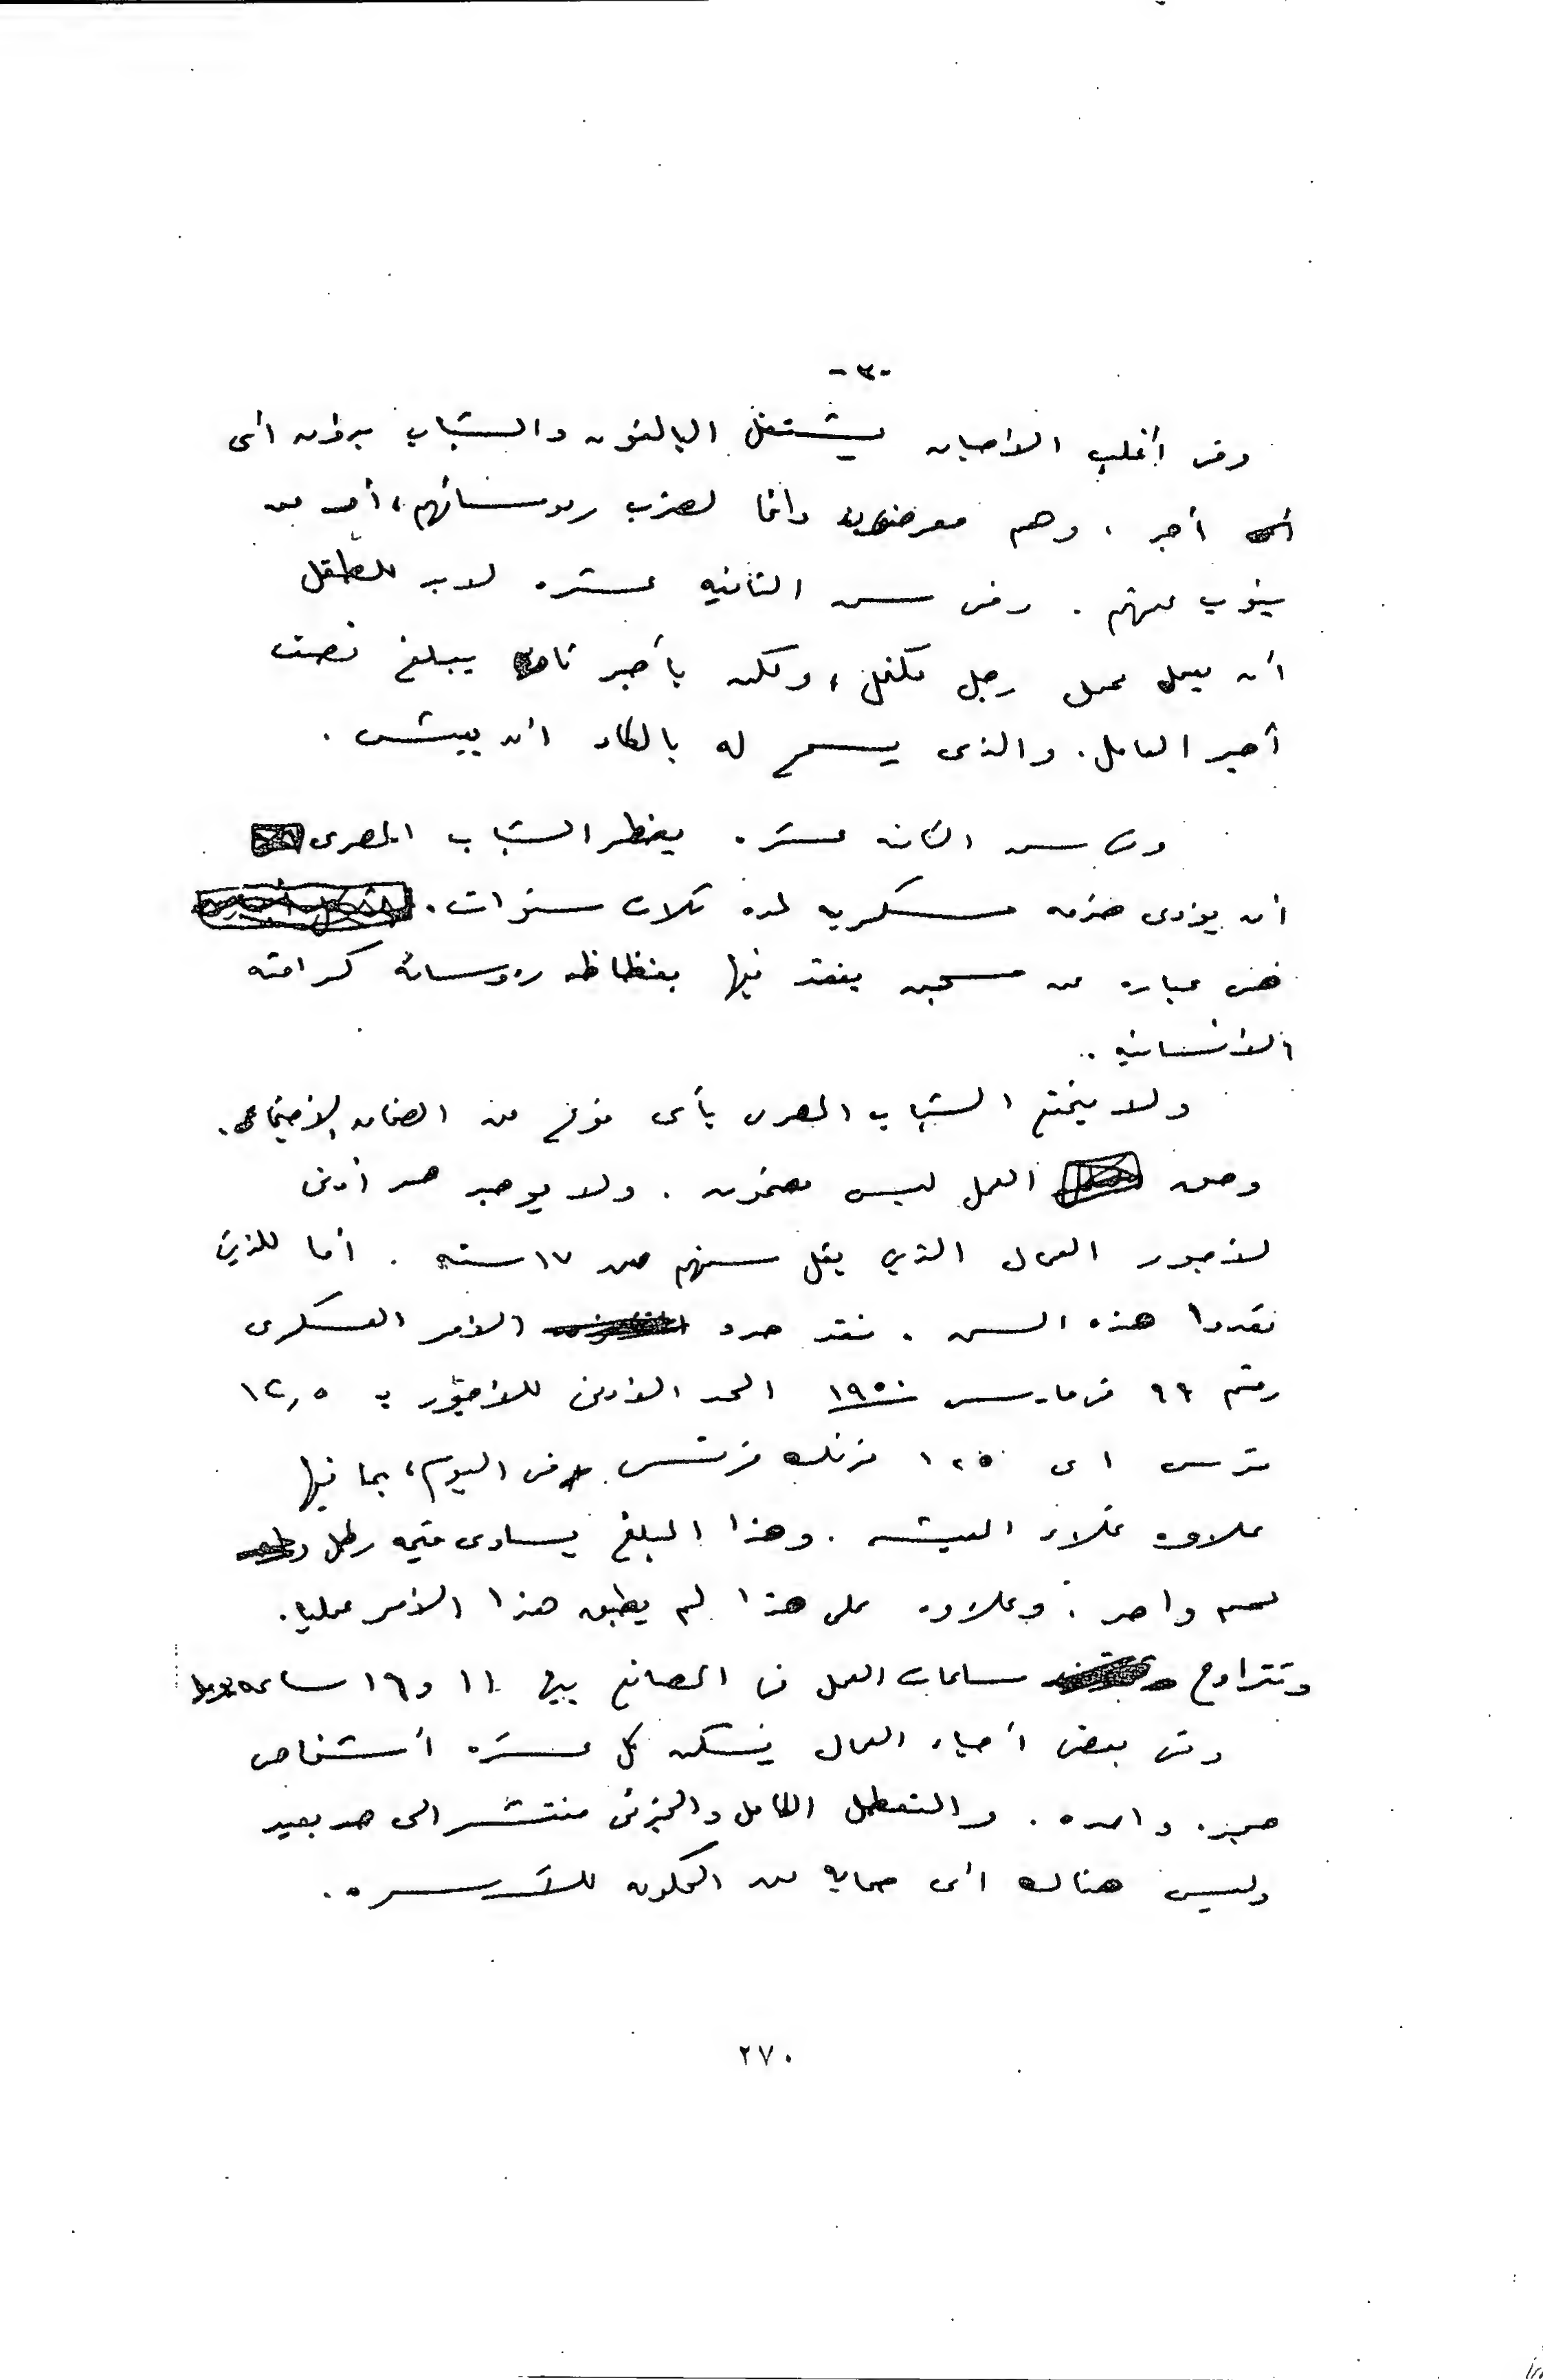 -٣-
وفى أغلب الاحيان يشتغل البالغون والشباب بدون أى
أجر ، وهم معرضون دائما لضرب رؤسائهم ، أو من
ينوب عنهم . وفى سن الثانيه عشره لابد للطفل
أن يعمل عمل رجل مكتمل ، ولكن بأجر يبلغ نصف
أجر العامل . والذى يسمح له بالكاد أن يعيش .
وفى سن الثامنه عشره يضطر الشباب المصرى
أن يؤدى خدمه عسكريه لمده ثلاث سنوات .
فهى عباره عن سجن يفقد فيها بفظاظه رؤسائه كرامته
الانسانيه ..
ولا يتمتع الشباب المصرى بأى نوع من الضمان الاجتماعى .
وحق العمل ليس مضمون . ولا يوجد حد أدنى
لأجور العمال الذين يقل سنهم عن ١٧ سنه . أما للذين
تعدوا هذه السن . فقد حدد الامر العسكرى
رقم ٩٩ فى مارس ١٩٥٠ الحد الأدنى للأجور بـ ١٢,٥
قرش اى ١٢٥ فرنك فرنسى فى اليوم ، بما فيها
علاوه غلاء المعيشه . وهذا المبلغ يساوى قيمه رطل
لحم واحد . وعلاوه على هذا لم يطبق هذا الأمر عمليا .
وتتراوح ساعات العمل فى المصانع بين ١١ و ١٦ ساعه
وفى بعض أحياء العمال يسكن كل عشره أشخاص
حجره واحده . والتعطل الكامل والجزئى منتشر الى حد بعيد
وليس هناك أى حمايه من الحكومه للأسره .
٢٧٠